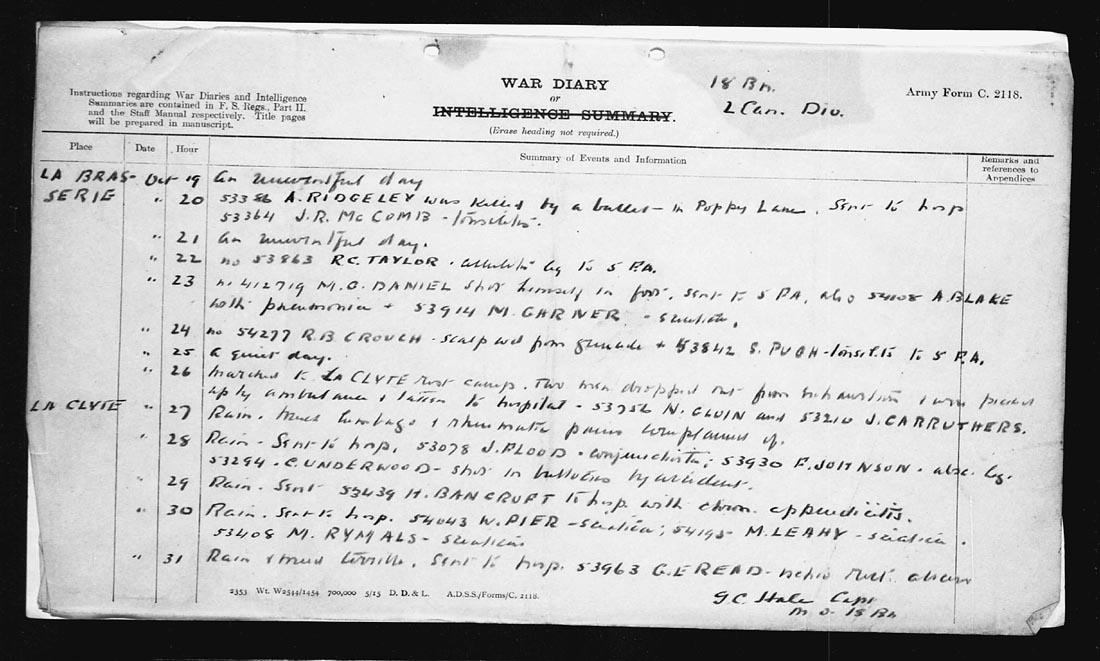 Instructions regarding War Diaries and Intelligence
Summaries are contained in F. S. Regs., Part II.
and the Staff Manual respectively. Title pages
will be prepared in manuscript.
WAR DIARY
or
INTELLIGENCE SUMMARY.
(Erase heading not required.)
18 Bn.
2 Can. Div.
Army Form C. 2118.
Place Date Hour Summary of Events and Information Remarks and references to Appendices
LA BRAS- Oct 19 An uneventful day
SERIE " 20 53386 A. RIDGELEY was killed by a bullet - in Poppy Lane. Sent to hosp
53364 J.R. McCOMB - tonsilitis.
" 21 An uneventful day.
" 22 no 53863 R.C. TAYLOR. leg to 5 F.A.
" 23 no 412719 M.G. DANIEL shot himself in foot. Sent to 5 FA, also 54108 A. BLAKE
with pneumonia + 53914 M. GARNER - sciatica.
" 24 no 54277 R.B. CROUCH - scalp wd from grenade + 53842 S. PUGH - tonsilitis to 5 F.A.
" 25 A quiet day.
" 26 Marched to LA CLYTE rest camp. Two men dropped out from exhaustion & were picked
LA CLYTE up by ambulance & taken to hospital - 53756 N. GWIN and 53210 J. CARRUTHERS.
" 27 Rain. Much lumbago & rheumatic pains complained of.
" 28 Rain - Sent to hosp. 53078 J. FLOOD - conjunctivitis; 53930 E. JOHNSON - absc. leg.
53294 - C. UNDERWOOD - shot in buttocks by accident.
" 29 Rain. Sent 53439 H. BANCROFT to hosp with chron. appendicitis.
" 30 Rain. Sent to hosp. 54043 W. PIER - sciatica; 54195 M. LEAHY - sciatica.
53408 M. RYMALS - sciatica
" 31 Rain & mud terrible. Sent to hosp. 53963 G.E READ - rect. abscess
2353 Wt. W2544/1454 700,000 5/15 D. D. & L. A.D.S.S./Forms/C. 2118.
G C Hale Capt
M O 18 Bn